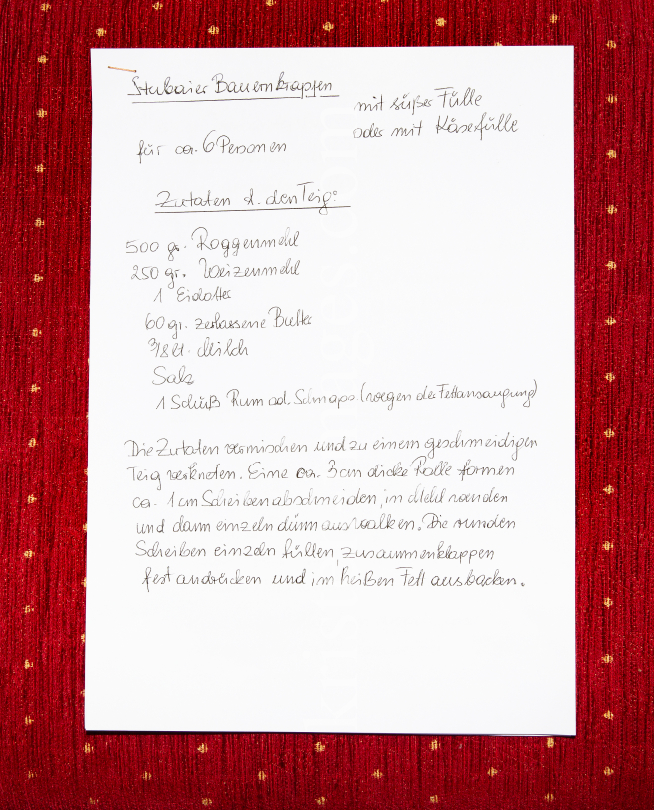 Stubaier Bauernkrapfen
mit süßer Fülle
oder mit Käsefülle
für ca. 6 Personen
Zutaten f. den Teig:
500 gr. Roggenmehl
250 gr. Weizenmehl
1 Eidotter
60 gr. zerlassene Butter
3/8 lt. Milch
Salz
1 Schuß Rum od. Schnaps (wegen der Fettansaugung)
Die Zutaten vermischen und zu einem geschmeidigen
Teig verkneten. Eine ca. 3 cm dicke Rolle formen
ca. 1 cm Scheiben abschneiden, in Mehl wenden
und dann einzeln dünn auswalken. Die runden
Scheiben einzeln füllen, zusammenklappen
fest andrücken und im heißen Fett ausbacken.